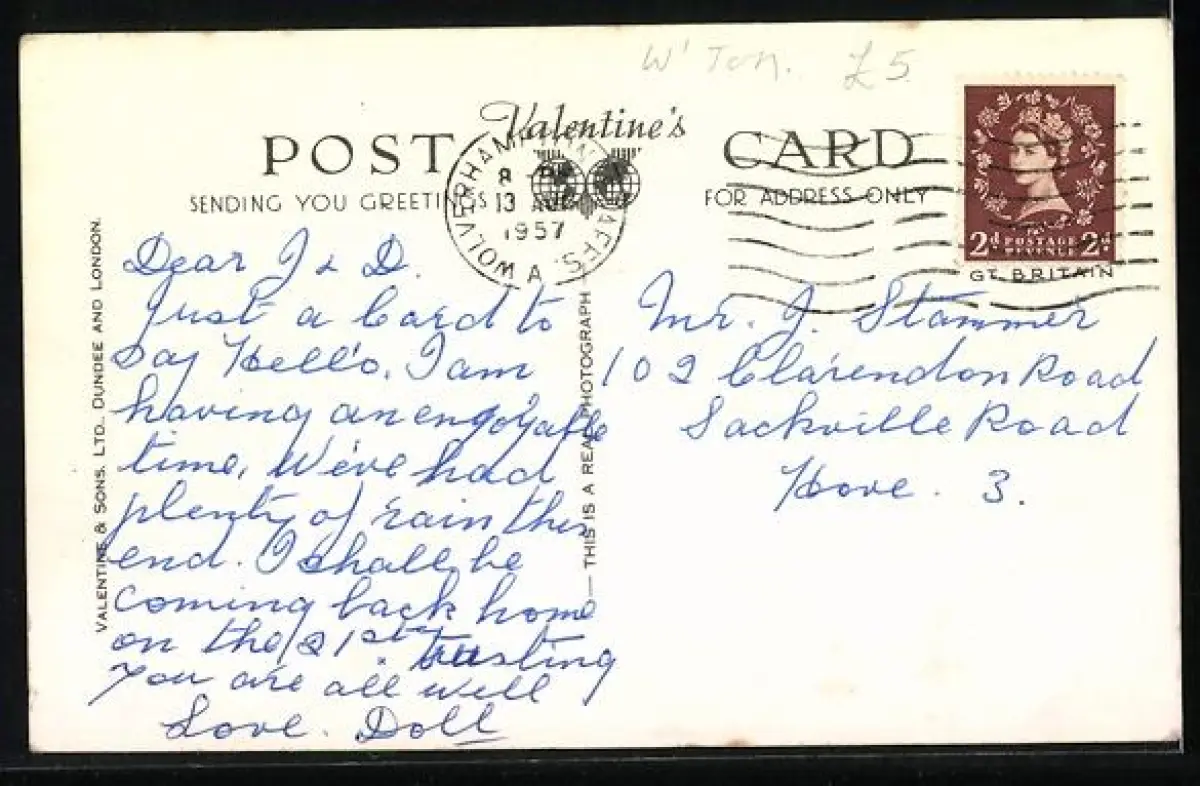 W'Ton. £5
Valentine's
POST CARD
SENDING YOU GREETINGS
FOR ADDRESS ONLY
WOLVERHAMPTON STAFFS.
8 PM
13 AUG
1957
A
2d POSTAGE REVENUE 2d
GT. BRITAIN
VALENTINE & SONS. LTD., DUNDEE AND LONDON.
Dear J & D.
Just a Card to
say Hello. I am
having an enjoyable
time. We've had
plenty of rain this
end. I shall be
coming back home
on the 21st. trusting
you are all well
Love. Doll
— THIS IS A REAL PHOTOGRAPH —
Mr. J. Stammer
102 Clarendon Road
Sackville Road
Hove. 3.